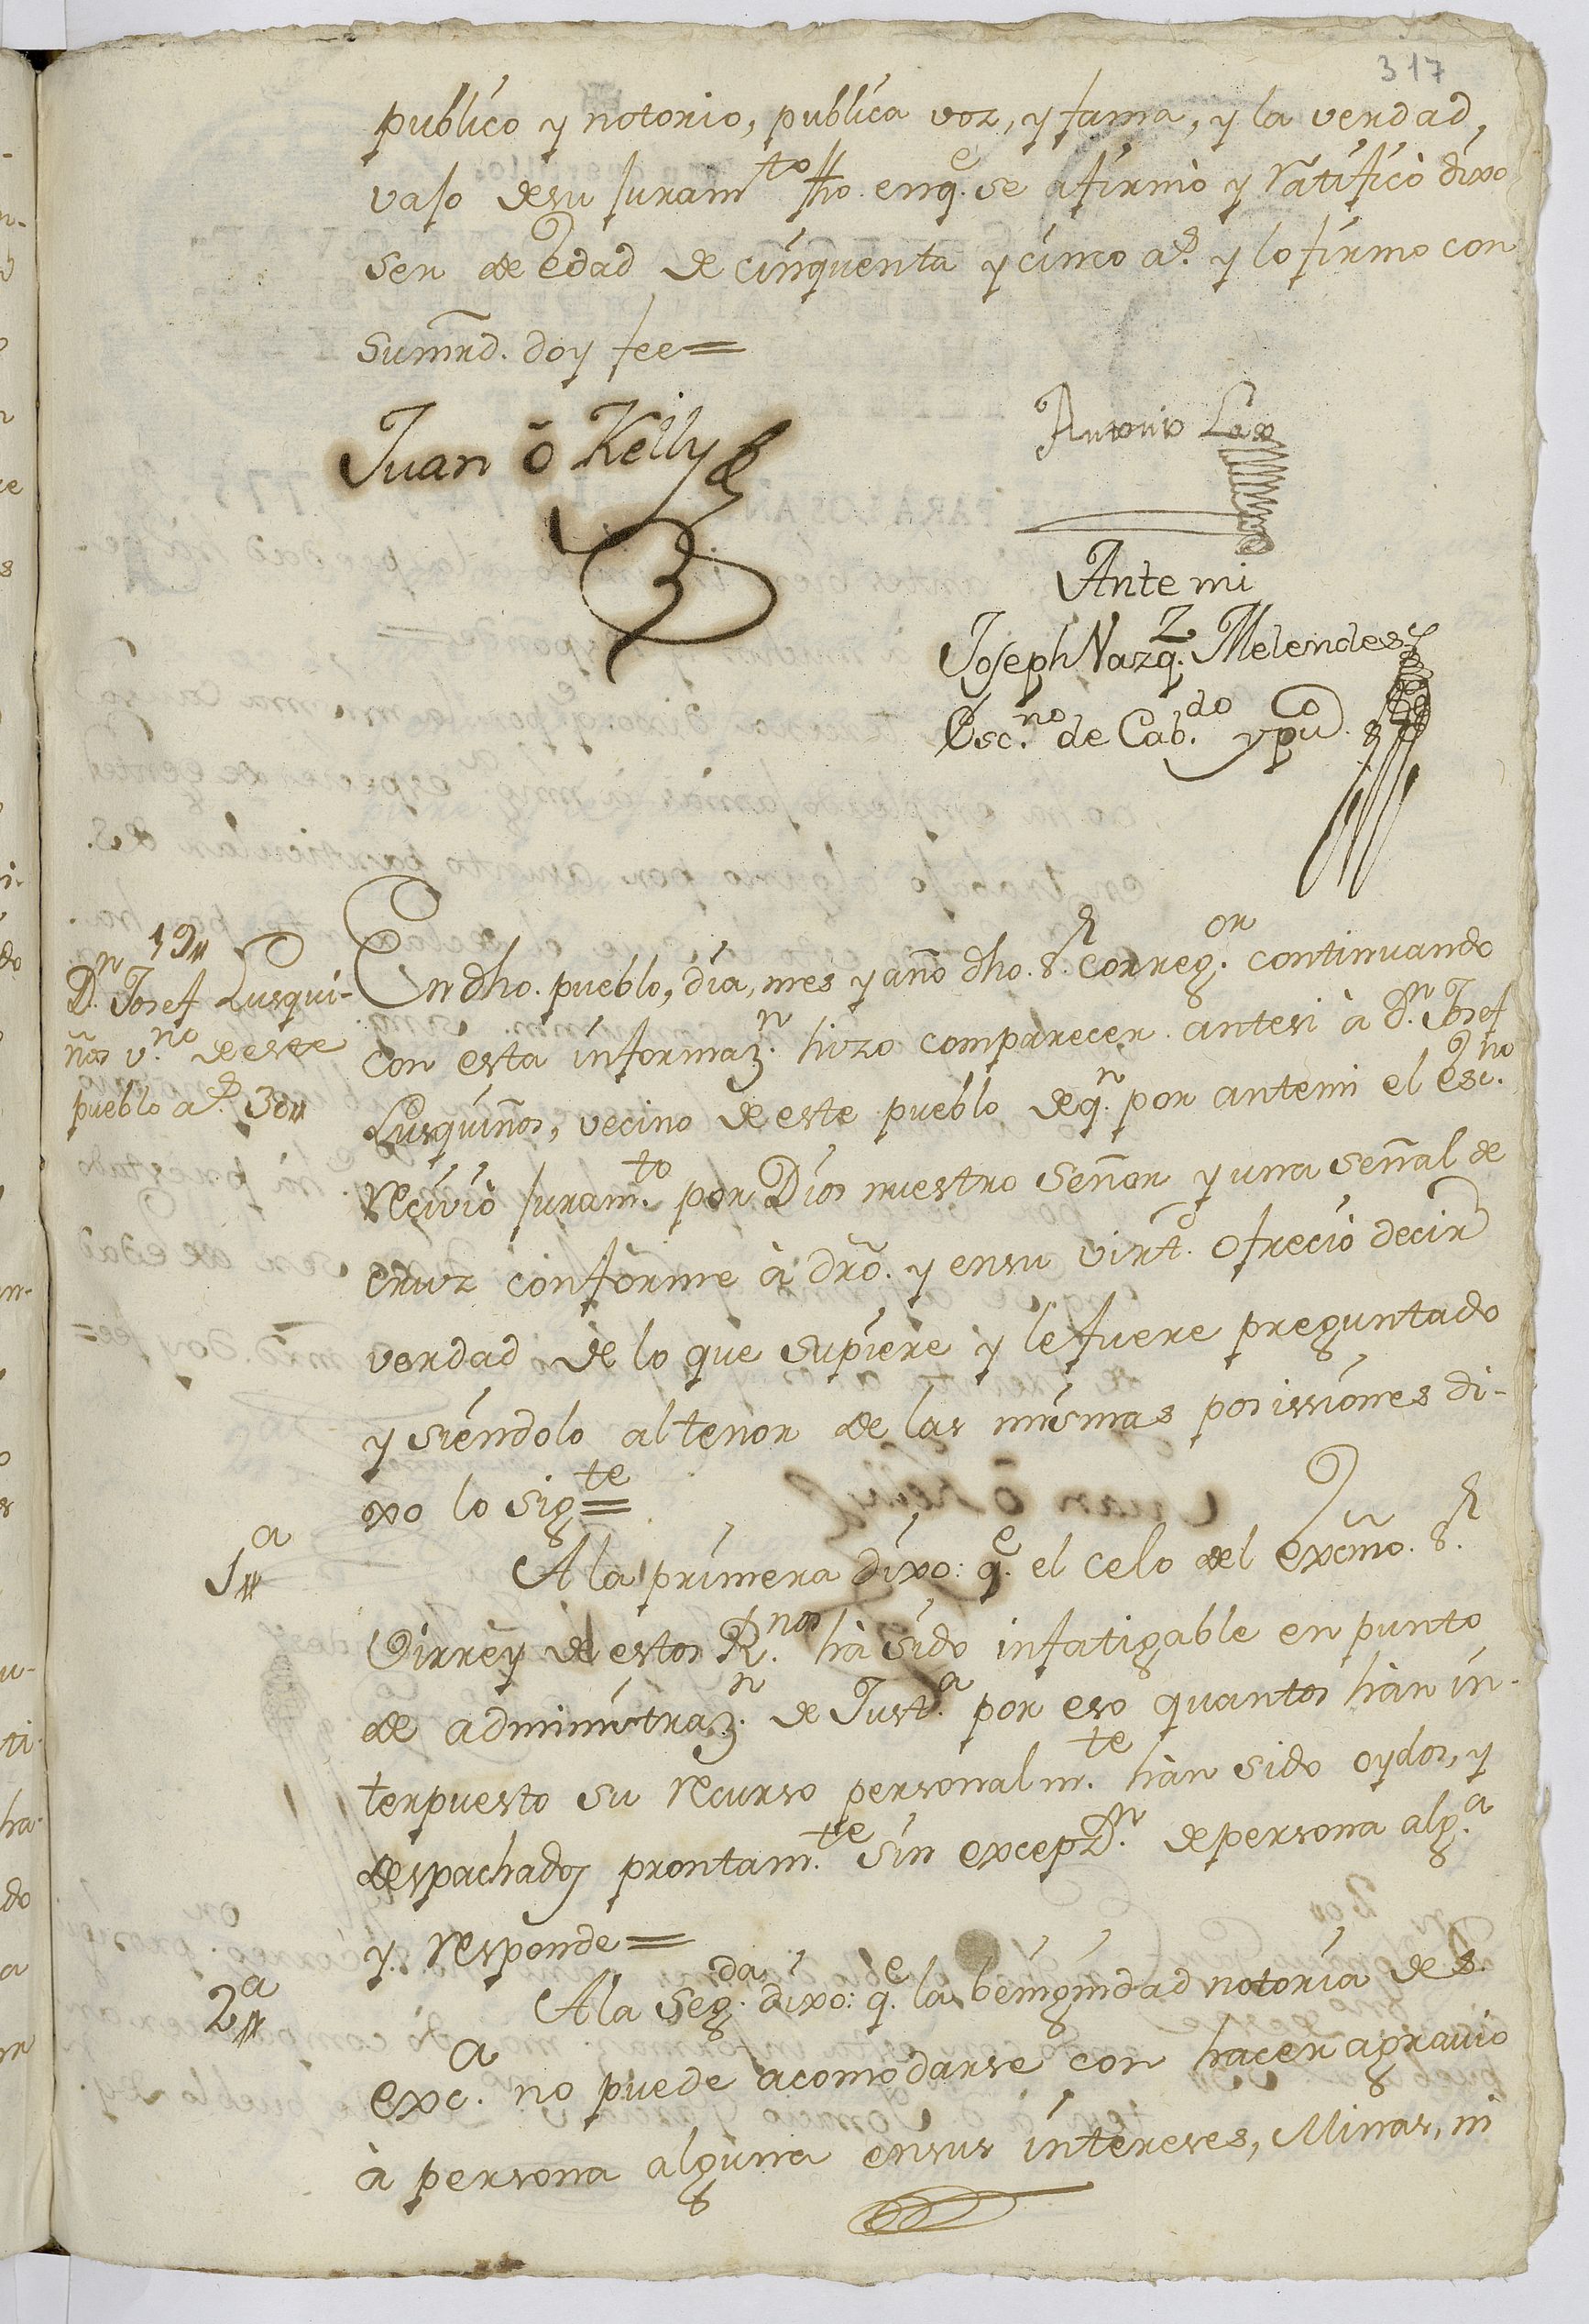 317
publico y notorio, publica voz, y fama, y la verdad,
vajo desu juram.to fho. enq.e se afirmò y ratificò dixo
ser de edad de cinquenta y cinco a.s y lo firmo con
sumrd. doy fee=
Juan ô Kelly
Antonio
Ante mi
Joseph Vazq.z Melendes
Esc.no de Cab.do y pu.co
19
D.n Josef Lusqui-
ños v.no de este
pueblo a.s 30
En dho. pueblo, dia, mes y año dho. S.r Correg.or continuando
con esta informaz.n hizo comparecer antesi à D.n Josef
Lusquiños, vecino de este pueblo deq.n por antemi el esc.no
recivio juram.to por Dios nuestro Señor y una señal de
cruz conforme à dro. y ensu virt.d ofreciò decir
verdad de lo que supiere y le fuere preguntado
y siendolo al tenor de las mismas posissiones di-
xo lo sig.te=
1.a
A la primera dixo: q.e el celo del excmo. S.r
Virrey de estos R.nos hà sido infatigable en punto
de administraz.n de Just.a por eso quantos hàn in-
terpuesto su recurso personalm.te hàn sido oydos, y
despachados prontam.te sin excepz.n de persona alg.a
y responde=
2.a
A la seg.da dixo: q.e la benignidad notoria de S.
exc.a no puede acomodarse con hacer agravio
à persona alguna ensus intereses, Minas, ni